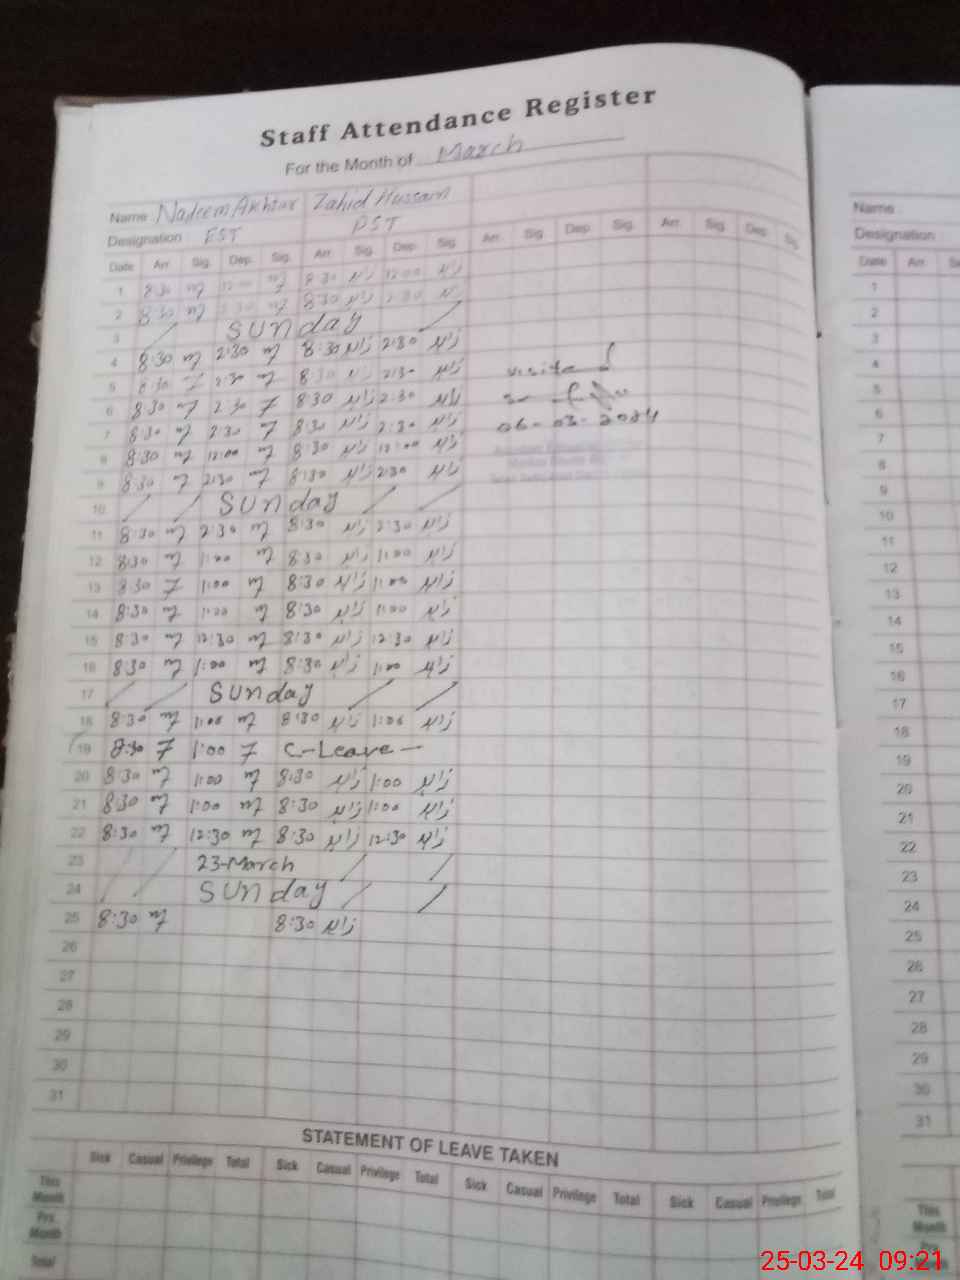 Staff Attendance Register
For the Month of March
Name Nadeem Akhtar Zahid Hussain
Designation EST PST
Date Arr. Sig. Dep. Sig. Arr. Sig. Dep. Sig. Arr. Sig. Dep. Sig. Arr. Sig. Dep. Sig.
1 8:30 8:30 زاہد 12:00 زاہد
2 8:30 8:30 زاہد 2:30 زاہد
3 Sunday
4 8:30 2:30 8:30 زاہد 2:30 زاہد
5 8:30 2:30 8:30 زاہد 2:30 زاہد
6 8:30 2:30 8:30 زاہد 2:30 زاہد
7 8:30 2:30 8:30 زاہد 2:30 زاہد
8 8:30 12:00 8:30 زاہد 12:00 زاہد
9 8:30 2:30 8:30 زاہد 2:30 زاہد
10 Sunday
11 8:30 2:30 8:30 زاہد 2:30 زاہد
12 8:30 1:00 8:30 زاہد 1:00 زاہد
13 8:30 1:00 8:30 زاہد 1:00 زاہد
14 8:30 1:00 8:30 زاہد 1:00 زاہد
15 8:30 12:30 8:30 زاہد 12:30 زاہد
16 8:30 1:00 8:30 زاہد 1:00 زاہد
17 Sunday
18 8:30 1:00 8:30 زاہد 1:00 زاہد
19 8:30 1:00 C-Leave
20 8:30 1:00 8:30 زاہد 1:00 زاہد
21 8:30 1:00 8:30 زاہد 1:00 زاہد
22 8:30 12:30 8:30 زاہد 12:30 زاہد
23 23-March
24 Sunday
25 8:30 8:30 زاہد
26
27
28
29
30
31
06-03-2024
STATEMENT OF LEAVE TAKEN
Sick Casual Privilege Total Sick Casual Privilege Total Sick Casual Privilege Total Sick Casual Privilege Total
This Month
Prv. Month
Total
Name
Designation
Date Arr.
1
2
3
4
5
6
7
8
9
10
11
12
13
14
15
16
17
18
19
20
21
22
23
24
25
26
27
28
29
30
31
This Month
25-03-24 09:21